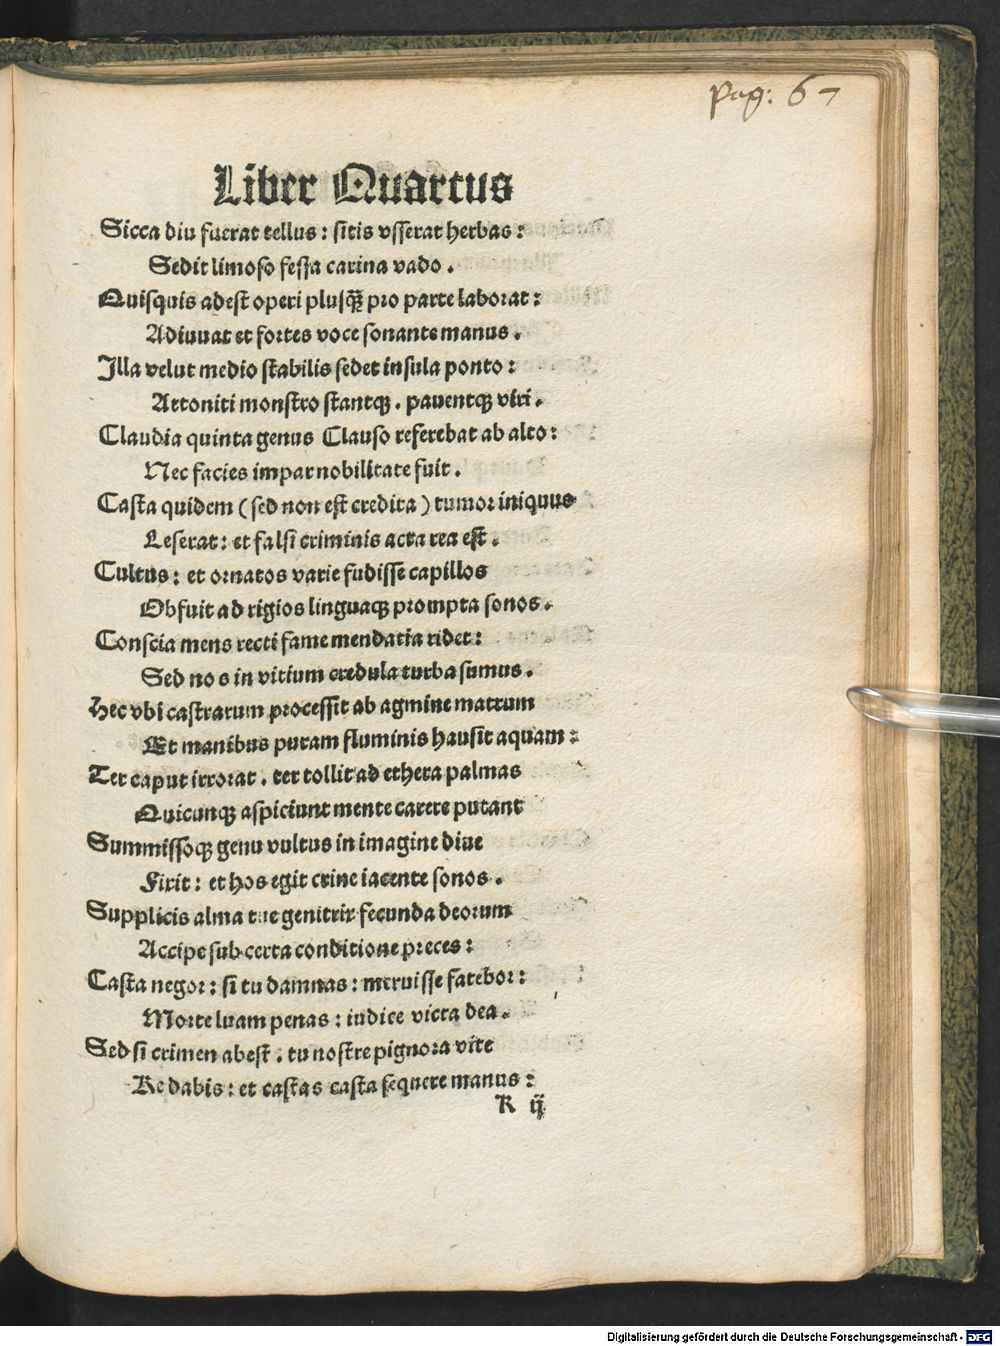 Pag: 67
Liber Quartus
Sicca diu fuerat tellus : sitis vsserat herbas :
Sedit limoso fessa carina vado .
Quisquis adest operi plusq̃ pro parte laborat :
Adiuuat et fortes voce sonante manus .
Illa velut medio stabilis sedet insula ponto :
Attoniti monstro stantqꝫ . pauentqꝫ viri .
Claudia quinta genus Clauso referebat ab alto :
Nec facies impar nobilitate fuit .
Casta quidem ( sed non est credita ) rumor iniquus
Leserat : et falsi criminis acta rea est .
Cultus : et ornatos varie fudisse capillos
Obfuit ad rigios linguaqꝫ prompta sonos .
Conscia mens recti fame mendatia ridet :
Sed nos in vitium credula turba sumus .
Hec vbi castrarum processit ab agmine matrum
Et manibus puram fluminis hausit aquam :
Ter caput irrorat . ter tollit ad ethera palmas
Quicunqꝫ aspiciunt mente carere putant
Summissoqꝫ genu vultus in imagine diue
Fixit : et hos egit crine iacente sonos .
Supplicis alma tue genitrix fecunda deorum
Accipe sub certa conditione preces :
Casta negor : si tu damnas : meruisse fatebor :
Morte luam penas : iudice victa dea .
Sed si crimen abest . tu nostre pignora vite
Re dabis : et castas casta sequere manus :
K ij
Digitalisierung gefördert durch die Deutsche Forschungsgemeinschaft - DFG